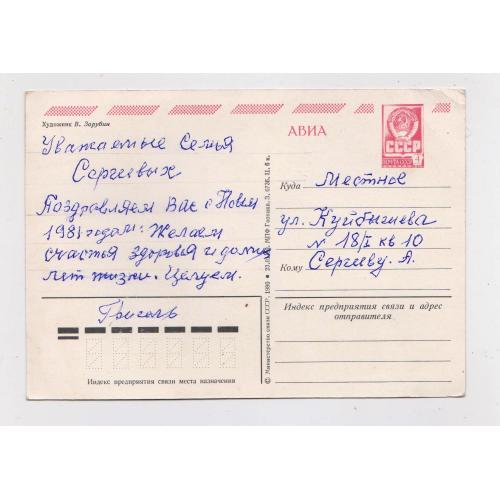 Художник В. Зарубин
АВИА
СССР
Уважаемые Семья
Сергеевых
Поздравляем Вас с Новым
1981 годом. Желаем
счастья здоровья и долгих
лет жизни. Целуем.
Куда Местное
ул. Куйбышева
N 18/I кв 10
Кому Сергееву. А.
Индекс предприятия связи и адрес
отправителя
Индекс предприятия связи места назначения
© Министерство связи СССР, 1980